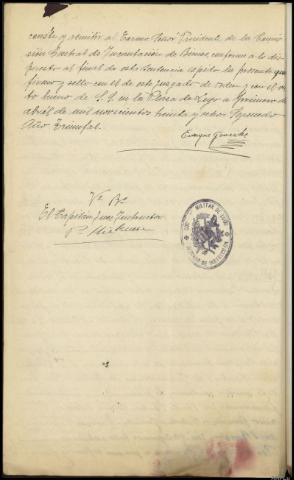 conste y remitir al Excmo Señor Presidente de la Comi-
sión Central de Incautación de Bienes, conforme a lo dis-
puesto al final de esta Sentencia expido la presente que
firmo y sello con el de este juzgado de orden y con el vis-
to bueno de S.S. en la Plaza de Lugo a primero de
abril de mil novecientos treinta y ocho Segundo
Año Triunfal.
Enrique
Vº Bº
El Capitán Juez Instructor
MILITAR DE